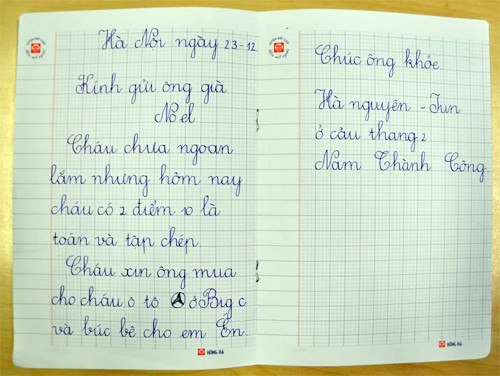 Hà Nội ngày 23-12
Kính gửi ông già
Nel
Cháu chưa ngoan
lắm nhưng hôm nay
cháu có 2 điểm 10 là
toán và tập chép.
Cháu xin ông mua
cho cháu ô tô ở Big c
và búc bê cho em En.
HỒNG HÀ
Chúc ông khỏe.
Hà nguyên - Jun
ở cầu thang 2
Nam Thành Công.
HỒNG HÀ